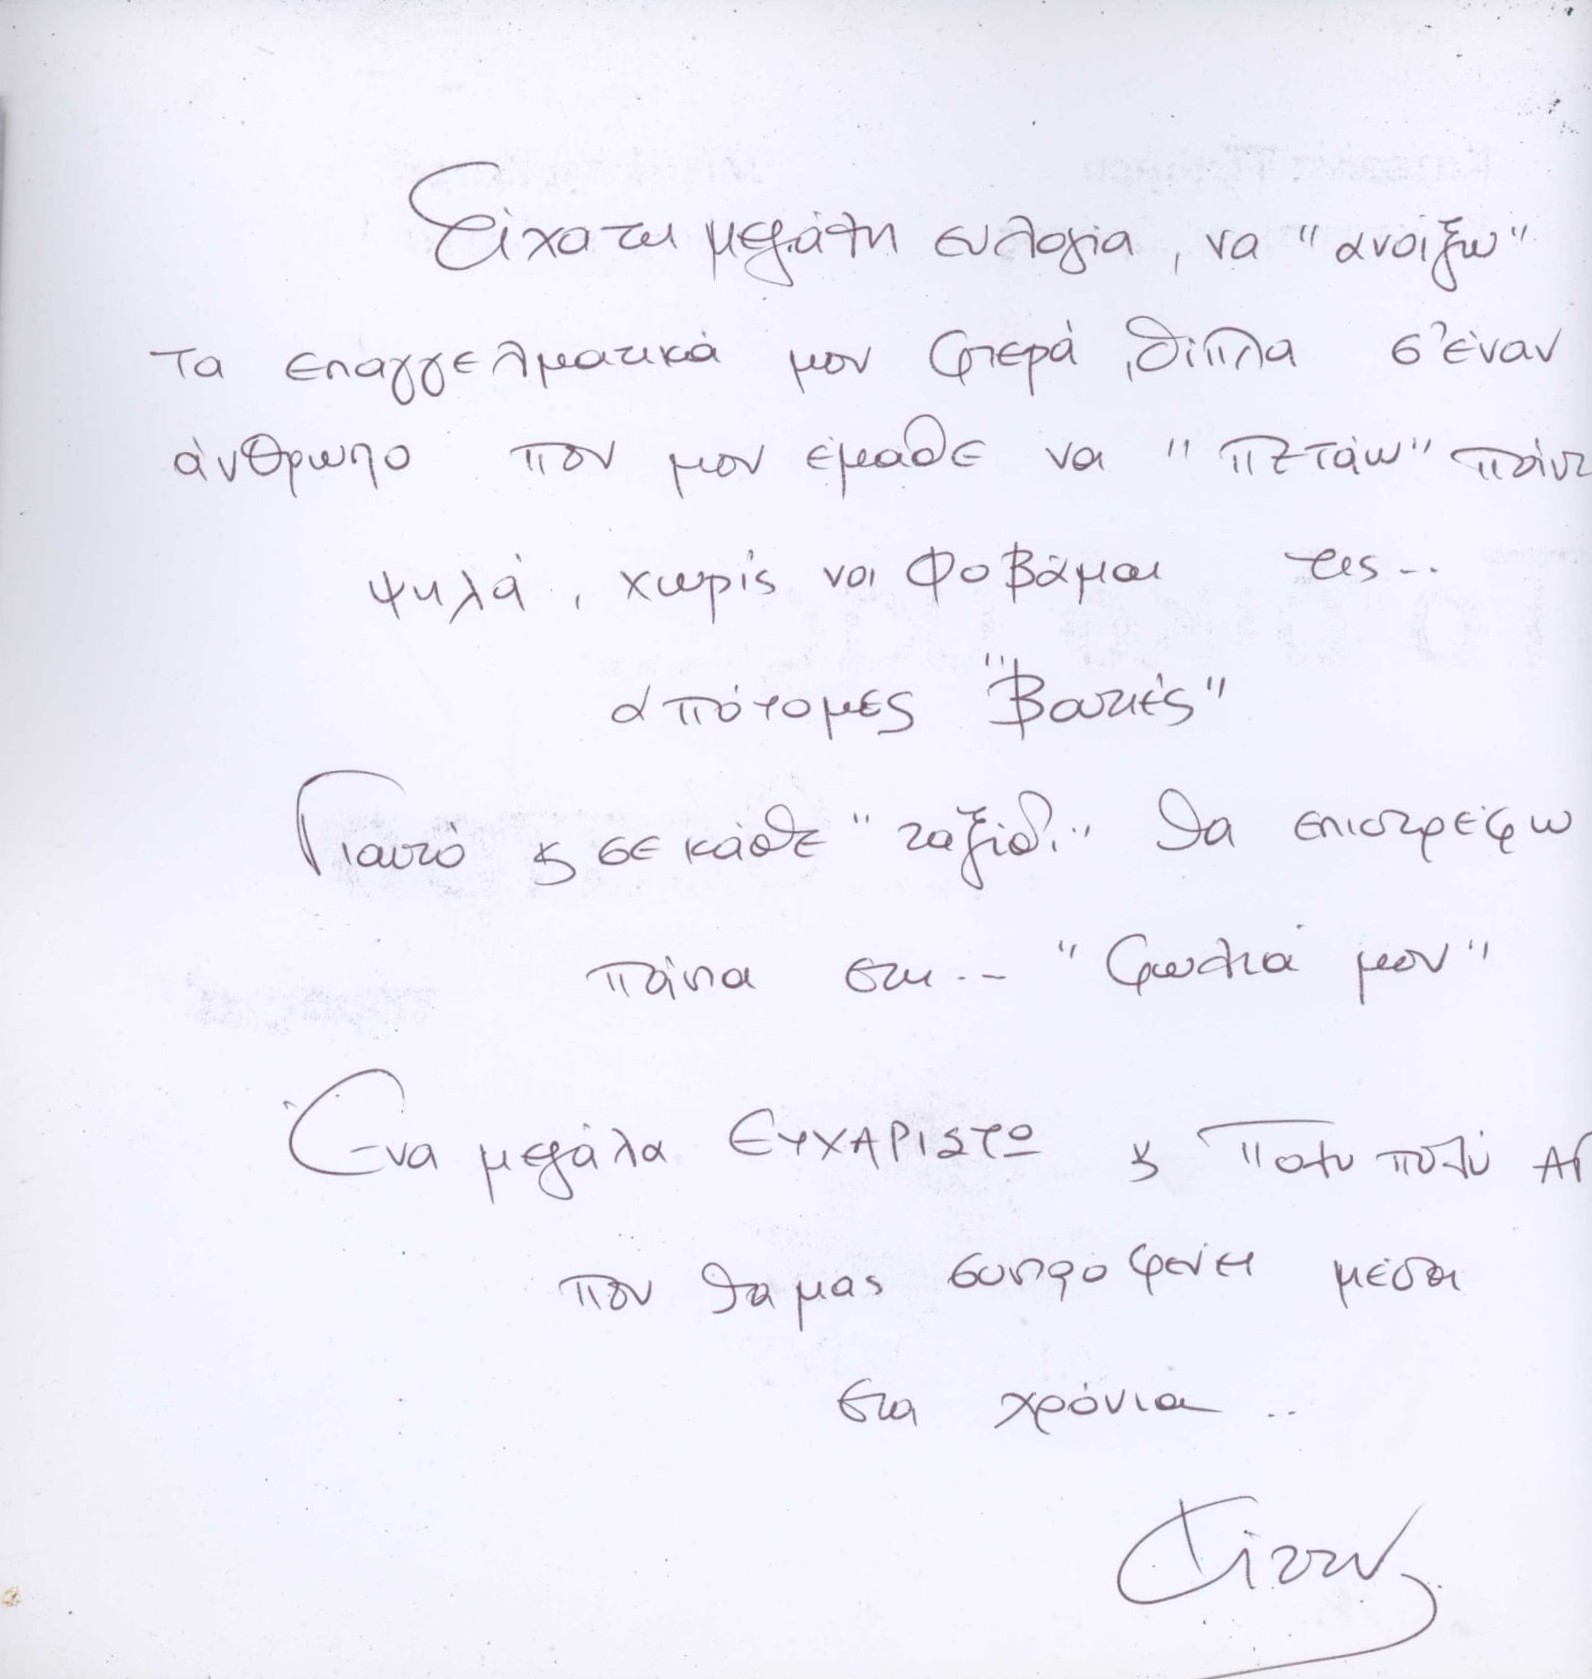 Είχα τη μεγάλη ευλογία, να "ανοίξω"
τα επαγγελματικά μου φτερά, δίπλα σ' έναν
άνθρωπο που μου έμαθε να "πετάω" πάντ
ψηλά, χωρίς να φοβάμαι τις...
απότομες "Βουτιές"
Γιαυτό & σε κάθε "ταξίδι" θα επιστρέφω
πάντα στη... "φωλιά μου"
Ένα μεγάλο ΕΥΧΑΡΙΣΤΩ & πολύ πολύ ΑΓ
που θα μας συντροφεύει μέσα
στα χρόνια..